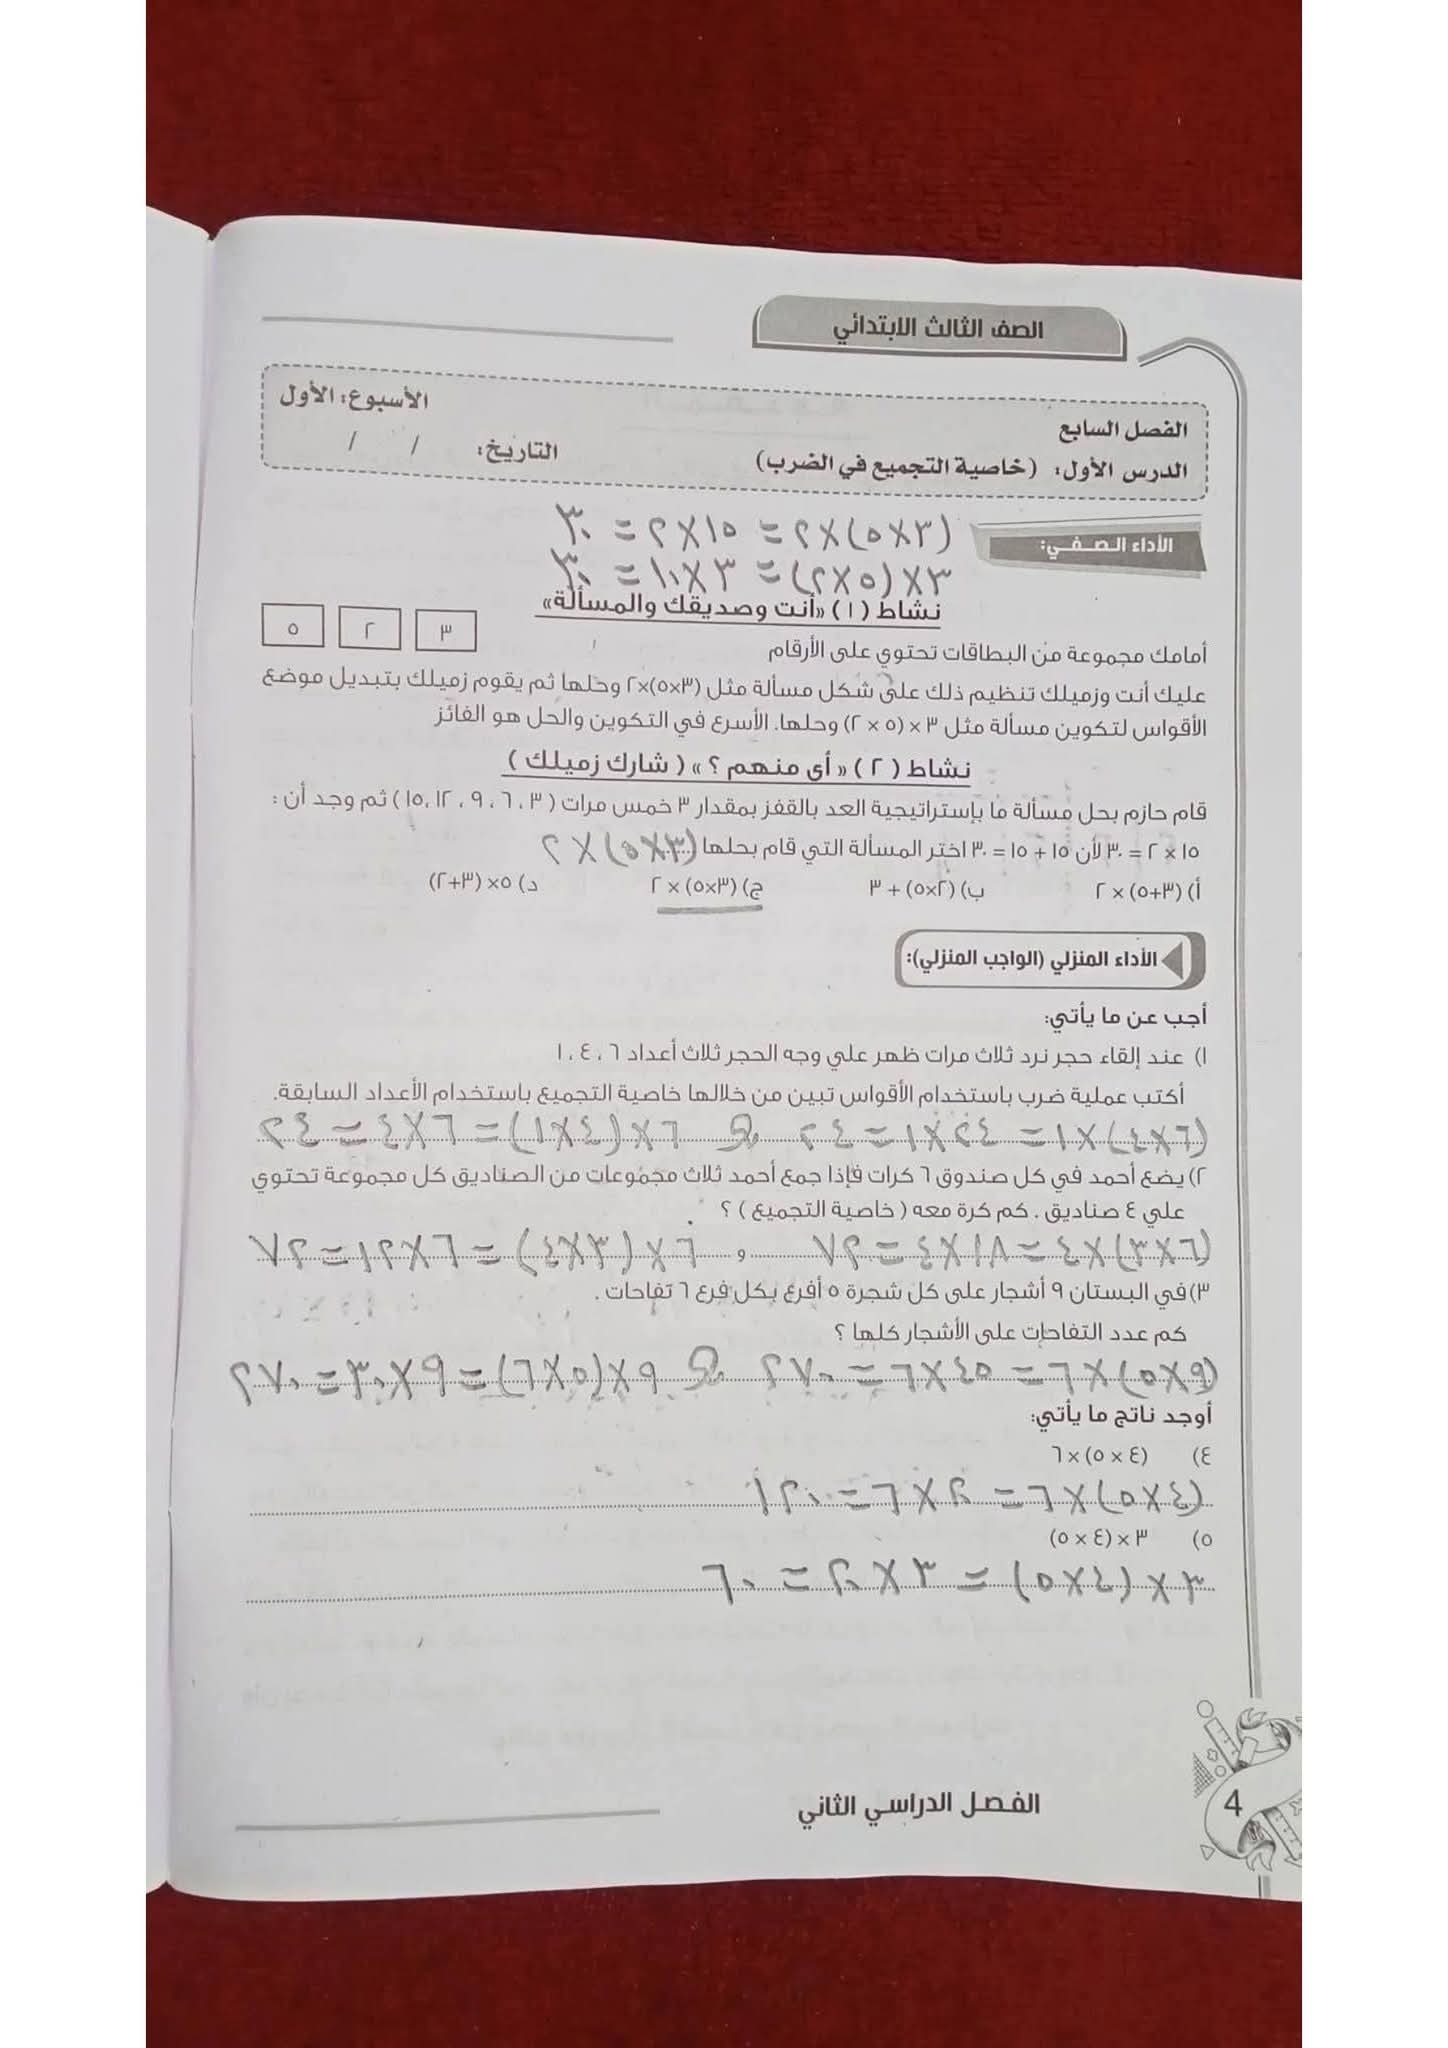 الصف الثالث الابتدائي
الفصل السابع
الأسبوع: الأول
الدرس الأول: (خاصية التجميع في الضرب)
التاريخ: / /
الأداء الصفي:
(٣×٥)×٢ = ١٥×٢ = ٣٠
٣×(٥×٢) = ٣×١٠ = ٣٠
نشاط (١) «أنت وصديقك والمسألة»
أمامك مجموعة من البطاقات تحتوي على الأرقام ٣ ٢ ٥
عليك أنت وزميلك تنظيم ذلك على شكل مسألة مثل (٣×٥)×٢ وحلها ثم يقوم زميلك بتبديل موضع
الأقواس لتكوين مسألة مثل ٣ × (٥ × ٢) وحلها. الأسرع في التكوين والحل هو الفائز
نشاط (٢) «أي منهم ؟» (شارك زميلك)
قام حازم بحل مسألة ما بإستراتيجية العد بالقفز بمقدار ٣ خمس مرات (٣ ، ٦ ، ٩ ، ١٢ ،١٥) ثم وجد أن :
١٥ × ٢ = ٣٠ لأن ١٥ + ١٥ = ٣٠ اختر المسألة التي قام بحلها (٣×٥)×٢
أ) (٣+٥) × ٢ ب) (٢×٥) + ٣ ج) (٣×٥) × ٢ د) ٥× (٣+٢)
الأداء المنزلي (الواجب المنزلي):
أجب عن ما يأتي:
١) عند إلقاء حجر نرد ثلاث مرات ظهر علي وجه الحجر ثلاث أعداد ٦ ، ٤ ، ١
أكتب عملية ضرب باستخدام الأقواس تبين من خلالها خاصية التجميع باستخدام الأعداد السابقة.
(٦×٤)×١ = ٢٤×١ = ٢٤ و ٦×(٤×١) = ٦×٤ = ٢٤
٢) يضع أحمد في كل صندوق ٦ كرات فإذا جمع أحمد ثلاث مجموعات من الصناديق كل مجموعة تحتوي
علي ٤ صناديق . كم كرة معه (خاصية التجميع) ؟
(٦×٣)×٤ = ١٨×٤ = ٧٢ ، ٦×(٣×٤) = ٦×١٢ = ٧٢
٣) في البستان ٩ أشجار على كل شجرة ٥ أفرع بكل فرع ٦ تفاحات .
كم عدد التفاحات على الأشجار كلها ؟
(٩×٥)×٦ = ٤٥×٦ = ٢٧٠ و ٩×(٥×٦) = ٩×٣٠ = ٢٧٠
أوجد ناتج ما يأتي:
٤) (٤ × ٥) ×٦
(٤×٥)×٦ = ٢٠×٦ = ١٢٠
٥) ٣ × (٤ × ٥)
٣×(٤×٥) = ٣×٢٠ = ٦٠
الفصل الدراسي الثاني
4